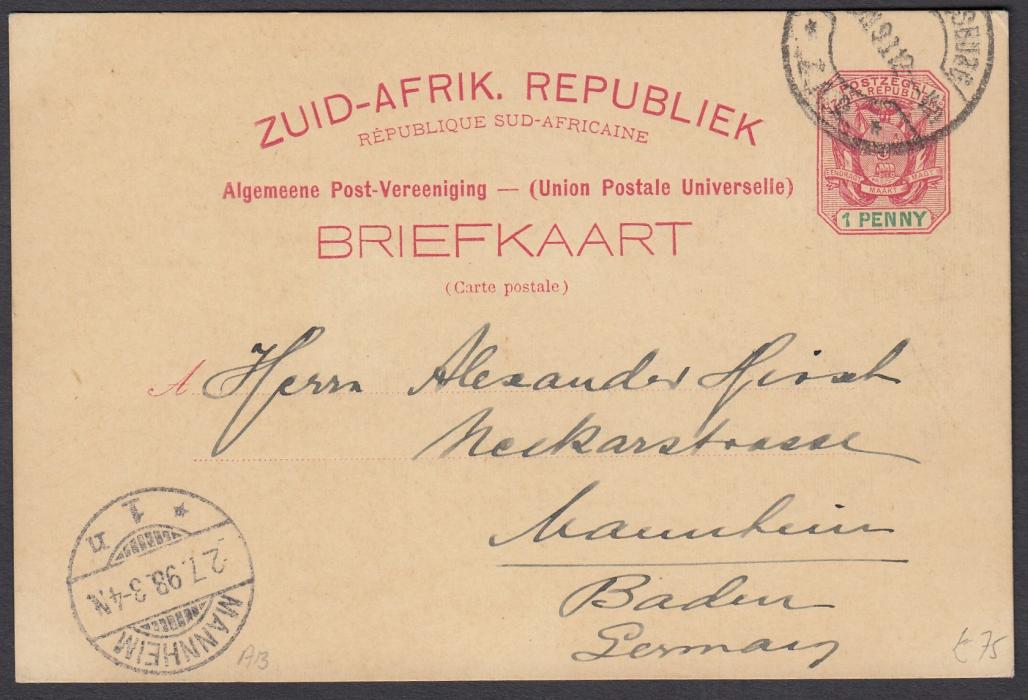 ZUID-AFRIK. REPUBLIEK
RÉPUBLIQUE SUD-AFRICAINE
Algemeene Post-Vereeniging — (Union Postale Universelle)
BRIEFKAART
(Carte postale)
POSTZEGEL
Z. AFR. REPUBLIEK
EENDRAGT MAAKT MAGT
1 PENNY
A Herrn Alexander Hirsch
Neckarstrasse
Mannheim
Baden
Germany
* 1 n
2.7.98.3-4N.
MANNHEIM
AB
£75